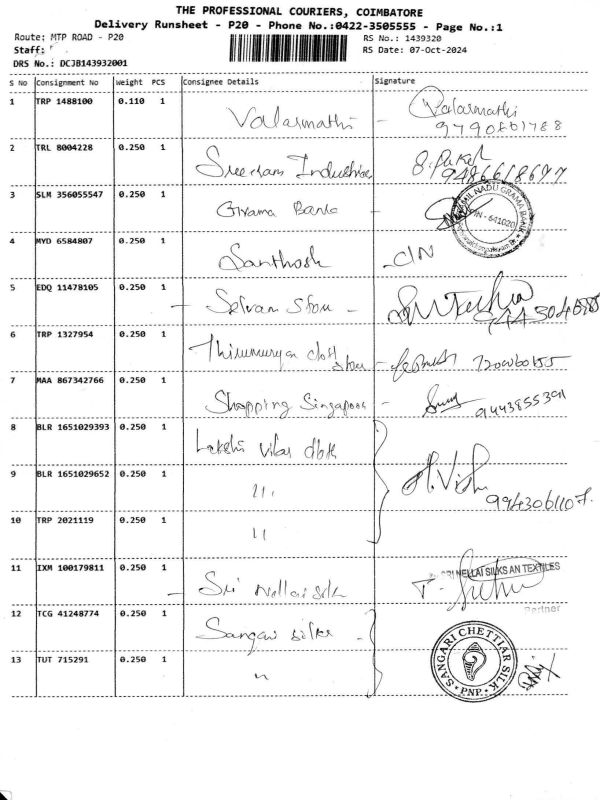 THE PROFESSIONAL COURIERS, COIMBATORE
Delivery Runsheet - P20 - Phone No.:0422-3505555 - Page No.:1
Route: MTP ROAD - P20
RS No.: 1439320
Staff:
RS Date: 07-Oct-2024
DRS No.: DCJB143932001
S No Consignment No Weight PCS Consignee Details Signature
1 TRP 1488100 0.110 1 Valarmathi - Valarmathi
2 TRL 8004228 0.250 1 Sreeram
9486618697
3 SLM 356055547 0.250 1 Grama Bank -
TAMIL NADU GRAMA BANK
PIN - 641020
4 MYD 6584807 0.250 1 Santhosh - C/N
5 EDQ 11478105 0.250 1 - Selvan -
6 TRP 1327954 0.250 1 Thirumurugan
7 MAA 867342766 0.250 1 Shopping Singapore -
8 BLR 1651029393 0.250 1 Lakshi vilas
9 BLR 1651029652 0.250 1 11,
H.
9943061107.
10 TRP 2021119 0.250 1 11
11 IXM 100179811 0.250 1 - Sri Nellai silk
SRI NELLAI SILKS AN TEXTILES
T.
Partner
12 TCG 41248774 0.250 1 Sangari silks -
SANGARI CHETTIAR SILK
PNP.
13 TUT 715291 0.250 1 "